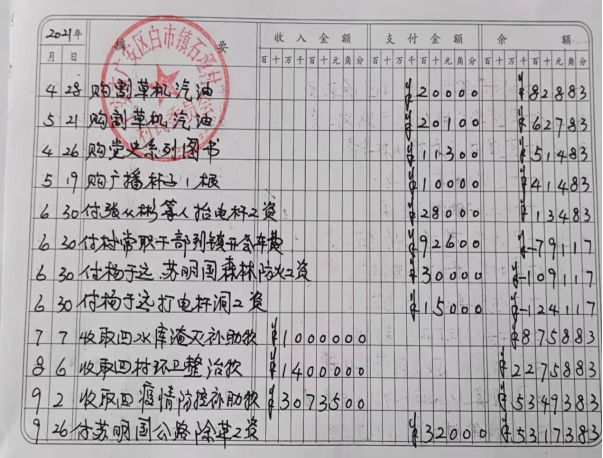 2021年 摘要 收入金额 支付金额 余额
月 日 百十万千百十元角分 百十万千百十元角分 百十万千百十元角分
广安区白市镇石 村
村民委员会
4 28 购割草机汽油 ¥20000 ¥82883
5 21 购割草机汽油 ¥20100 ¥62783
4 26 购党史系列图书 ¥11300 ¥51483
5 19 购广播杆子1根 ¥10000 ¥41483
6 30 付张从彬等人抬电杆工资 ¥28000 ¥13483
6 30 付村常职干部到镇开会车费 ¥92600 ¥-79117
6 30 付杨于远 苏明国森林防火工资 ¥30000 ¥-109117
6 30 付杨于远打电杆洞工资 ¥15000 ¥-124117
7 7 收取回水库淹灭补助款 ¥1000000 ¥875883
8 6 收取回村环卫整治款 ¥1400000 ¥2275883
9 2 收取回疫情防控补助款 ¥3073500 ¥5349383
9 26 付苏明国公路除草工资 ¥32000 ¥5317383